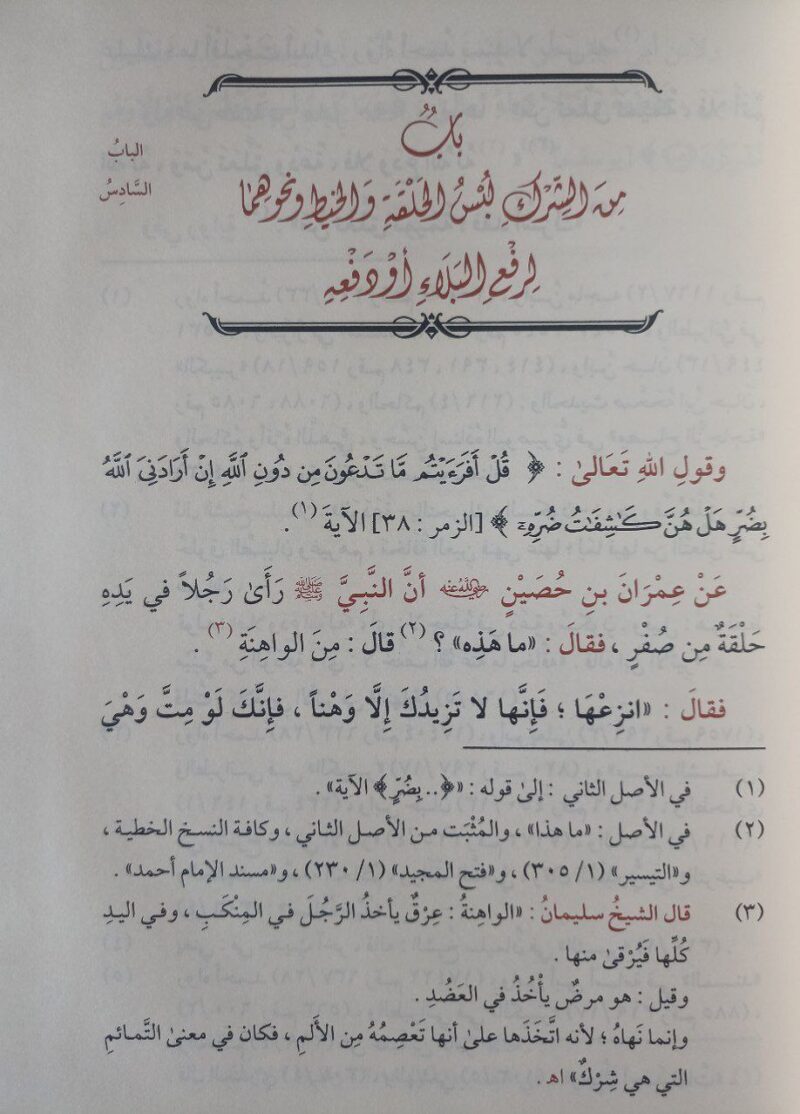 البابُ
السَّادِسُ
بابٌ
مِنَ الشِّرْكِ لُبْسُ الحَلْقَةِ وَالخَيطِ ونحوِهِمَا
لِرفْعِ البَلَاءِ أَوْ دَفْعِهِ
وقولِ اللهِ تَعَالىٰ : ﴿ قُلْ أَفَرَءَيْتُم مَّا تَدْعُونَ مِن دُونِ ٱللَّهِ إِنْ أَرَادَنِىَ ٱللَّهُ
بِضُرٍّ هَلْ هُنَّ كَـٰشِفَـٰتُ ضُرِّهِۦٓ ﴾ [الزمر : ٣٨] الآيةَ (١) .
عَنْ عِمْرَانَ بنِ حُصَيْنٍ رضي الله عنه أنَّ النَّبِيَّ ﷺ رَأَىٰ رَجُلاً في يَدِهِ
حَلْقَةٌ مِن صُفْرٍ ، فقالَ : «ما هَذِه» ؟ (٢) قالَ : مِنَ الواهِنَةِ (٣) .
فقالَ : «انزِعْهَا ؛ فَإِنَّها لا تَزِيدُكَ إِلَّا وَهْناً ، فإِنَّكَ لَوْ مِتَّ وَهْيَ
(١) في الأصل الثاني : إلىٰ قوله : «﴿.. بِضُرٍّ﴾ الآية» .
(٢) في الأصل : «ما هذا» ، والمُثْبَت من الأصل الثاني ، وكافة النسخ الخطية ،
و«التيسير» (١/ ٣٠٥) ، و«فتح المجيد» (١/ ٢٣٠) ، و«مسند الإمام أحمد» .
(٣) قال الشيخُ سليمانُ : «الواهِنةُ : عِرْقٌ يأخذُ الرَّجُلَ في المِنْكَبِ ، وفي اليدِ
كُلِّها فَيُرْقىٰ منها .
وقيل : هو مرضٌ يأْخُذُ في العَضُدِ .
وإنما نَهاهُ ؛ لأنه اتَّخَذَها علىٰ أنها تَعْصِمُهُ مِنَ الأَلَمِ ، فكان في معنىٰ التَّمائمِ
التي هي شِرْكٌ» اهـ .